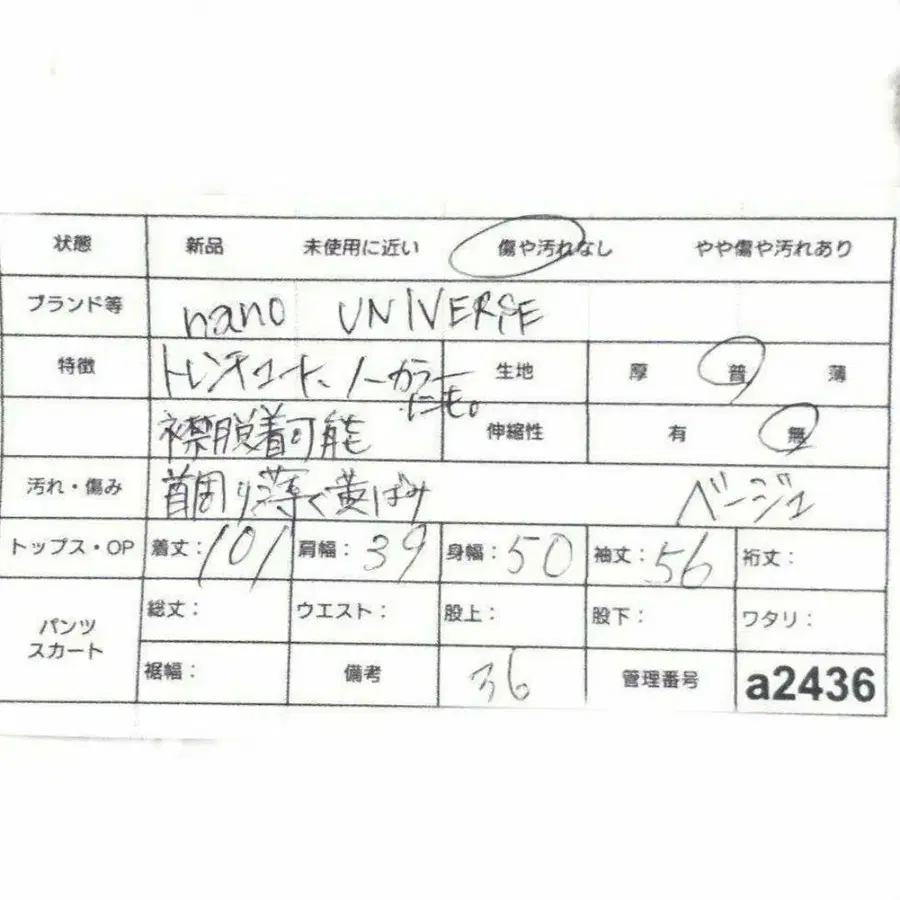 状態 新品 未使用に近い 傷や汚れなし やや傷や汚れあり
ブランド等 nano UNIVERSE
特徴 トレンチコート、ノーカラーにも。 生地 厚 普 薄
襟脱着可能 伸縮性 有 無
汚れ・傷み 首周り薄く黄ばみ ベージュ
トップス・OP 着丈：101 肩幅：39 身幅：50 袖丈：56 裄丈：
パンツ スカート 総丈： ウエスト： 股上： 股下： ワタリ：
裾幅： 備考 36 管理番号 a2436